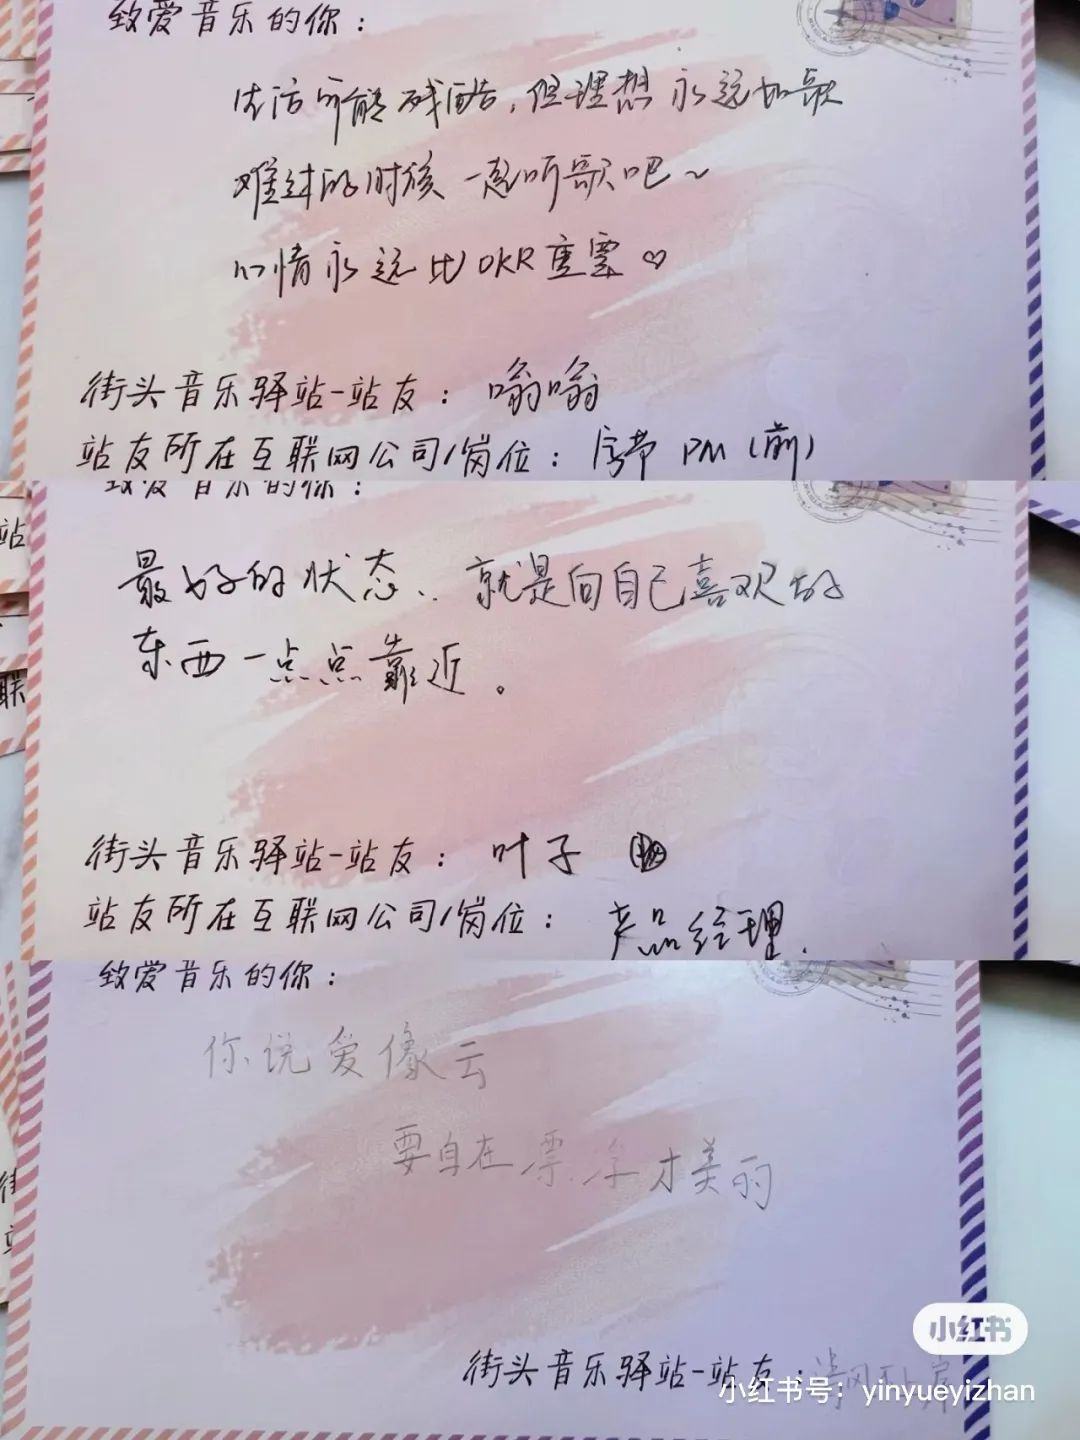 致爱音乐的你：
生活可能残酷，但理想永远如歌
难过的时候一起听歌吧～
心情永远比OKR重要♡
街头音乐驿站-站友：嗡嗡
站友所在互联网公司/岗位：字节 PM（前）
致爱音乐的你：
最好的状态.. 就是向自己喜欢的
东西一点点靠近。
街头音乐驿站-站友：叶子
站友所在互联网公司/岗位：产品经理.
致爱音乐的你：
你说爱像云
要自在漂浮才美丽
小红书
街头音乐驿站-站友：
小红书号：yinyueyizhan